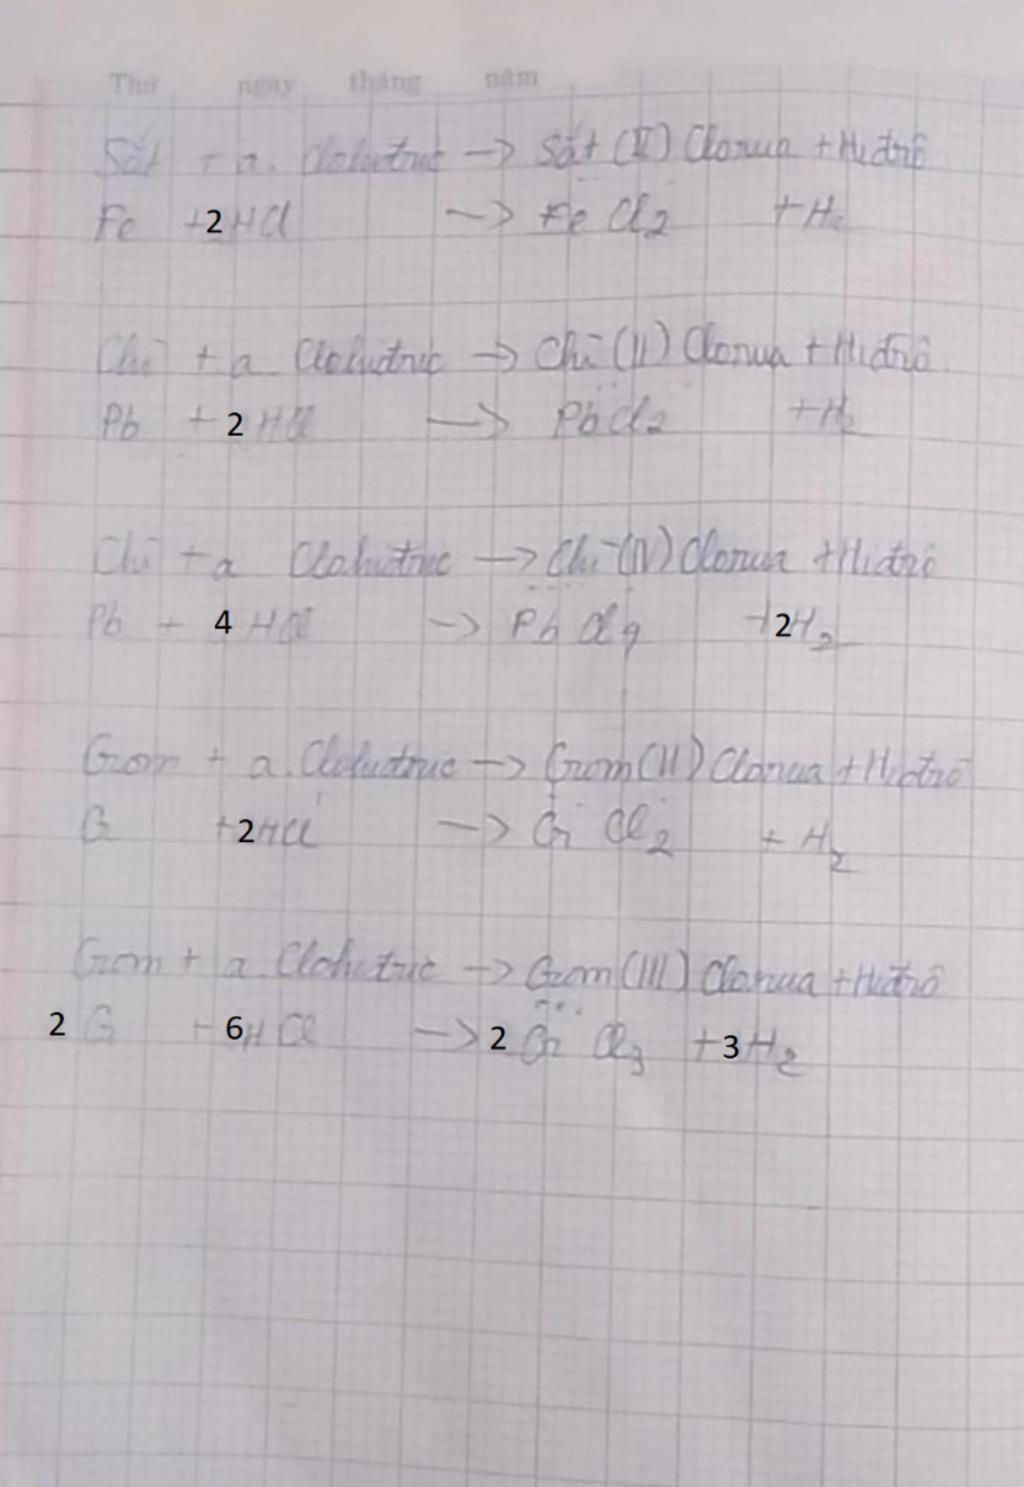 Thứ ngày tháng năm
Sắt + a. Clohiđric -> Sắt (II) Clorua + Hiđrô
Fe +2HCl -> FeCl2 + H2
Chì + a Clohiđric -> Chì (II) Clorua + Hiđrô
Pb + 2HCl -> PbCl2 + H2
Chì + a Clohiđric -> Chì (IV) Clorua + Hiđrô
Pb + 4HCl -> PbCl4 + 2H2
Crom + a. Clohiđric -> Crom (II) Clorua + Hiđrô
Cr +2HCl -> CrCl2 + H2
Crom + a. Clohiđric -> Crom (III) Clorua + Hiđrô
2Cr + 6HCl -> 2CrCl3 + 3H2